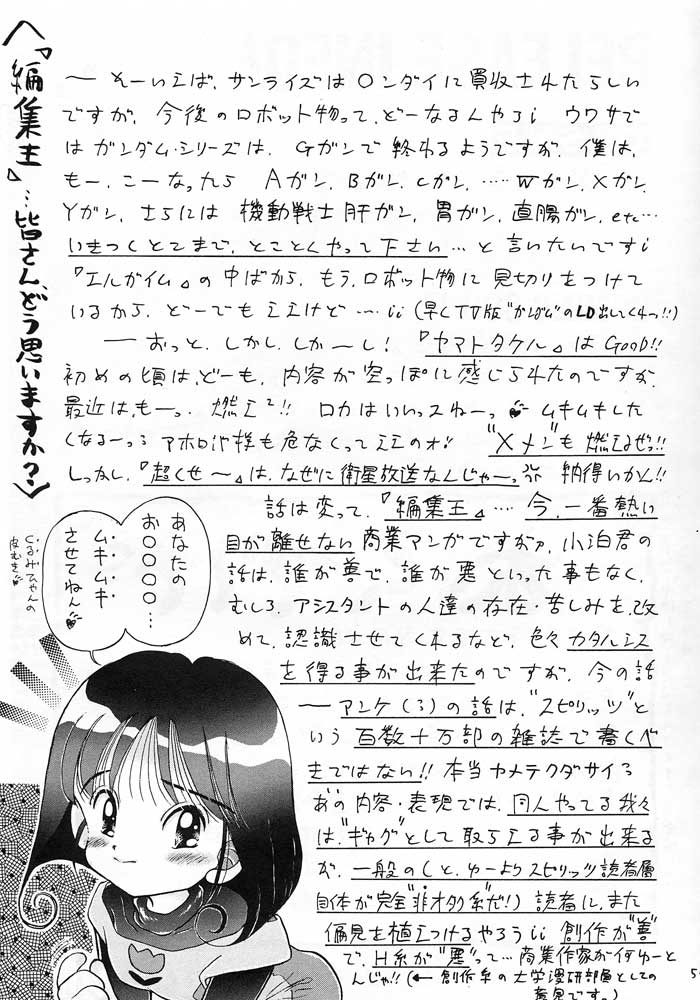 〈『編集王』…皆さん、どう思いますか?〉
― そーいえば、サンライズは〇ンダイに買収されたらしい
ですが、今後のロボット物って、どーなるんやろ¡ ウワサで
はガンダム・シリーズは、Gガンで終わるようですが、僕は、
もー、こーなったら Aガン、Bガン、Cガン、……Wガン、Xガン、
Yガン、さらには 機動戦士肝ガン、胃ガン、直腸ガン、etc…
いきつくとこまで、とことくやって下さい…と言いたいです¡
『エルガイム』の中ばから、もう、ロボット物に見切りをつけて
いるから、どーでもええけど…¡¡(早くTV版"かぼぱ"のLD出してくれっ!!)
―おっと、しかし、しか〜し!『ヤマトタケル』はGooD!!
初めの頃は、どーも、内容が空っぽに感じられたのですが、
最近は、もーっ、燃え!!ロカはいいっスねーっ ムキムキした
くなるーっ アホロ 様も危なくってええのオ!"Xメン"も燃えるぜっ!!
しっかし、『超くせ〜』は、なぜに衛星放送なんじゃーっ 納得いかん!!
話は変って、『編集王』…今、一番熱い
目が離せない商業マンガですがァ、小泊君の
話は、誰が善で、誰が悪といった事もなく、
むしろ、アシスタントの人達の存在・苦しみを、改
めて、認識させてくれるなど、色々カタルシス
を得る事が出来たのですが、今の話
― アンケ(ろ)の話は、"スピリッツ"と
いう百数十万部の雑誌で書くべ
きではない!!本当カメテクダサイろ
あの内容・表現では、同人やってる我々
は、"ギャグ"として取らえる事が出来る
が、一般のひと、(ゆーよりスピリッツ読者層
自体が完全"非オタク系"だ!)読者に、また
偏見を植えつけるやろう¡¡ 創作が"善"
で、H系が"悪"って…商業作家が何ゆーと
んじゃ!!(← 創作系の大学漫研部員としての
意見です。)
あなたの
お〇〇〇〇…
ムキムキ
させてねん
くるみちゃんの
皮むき
5